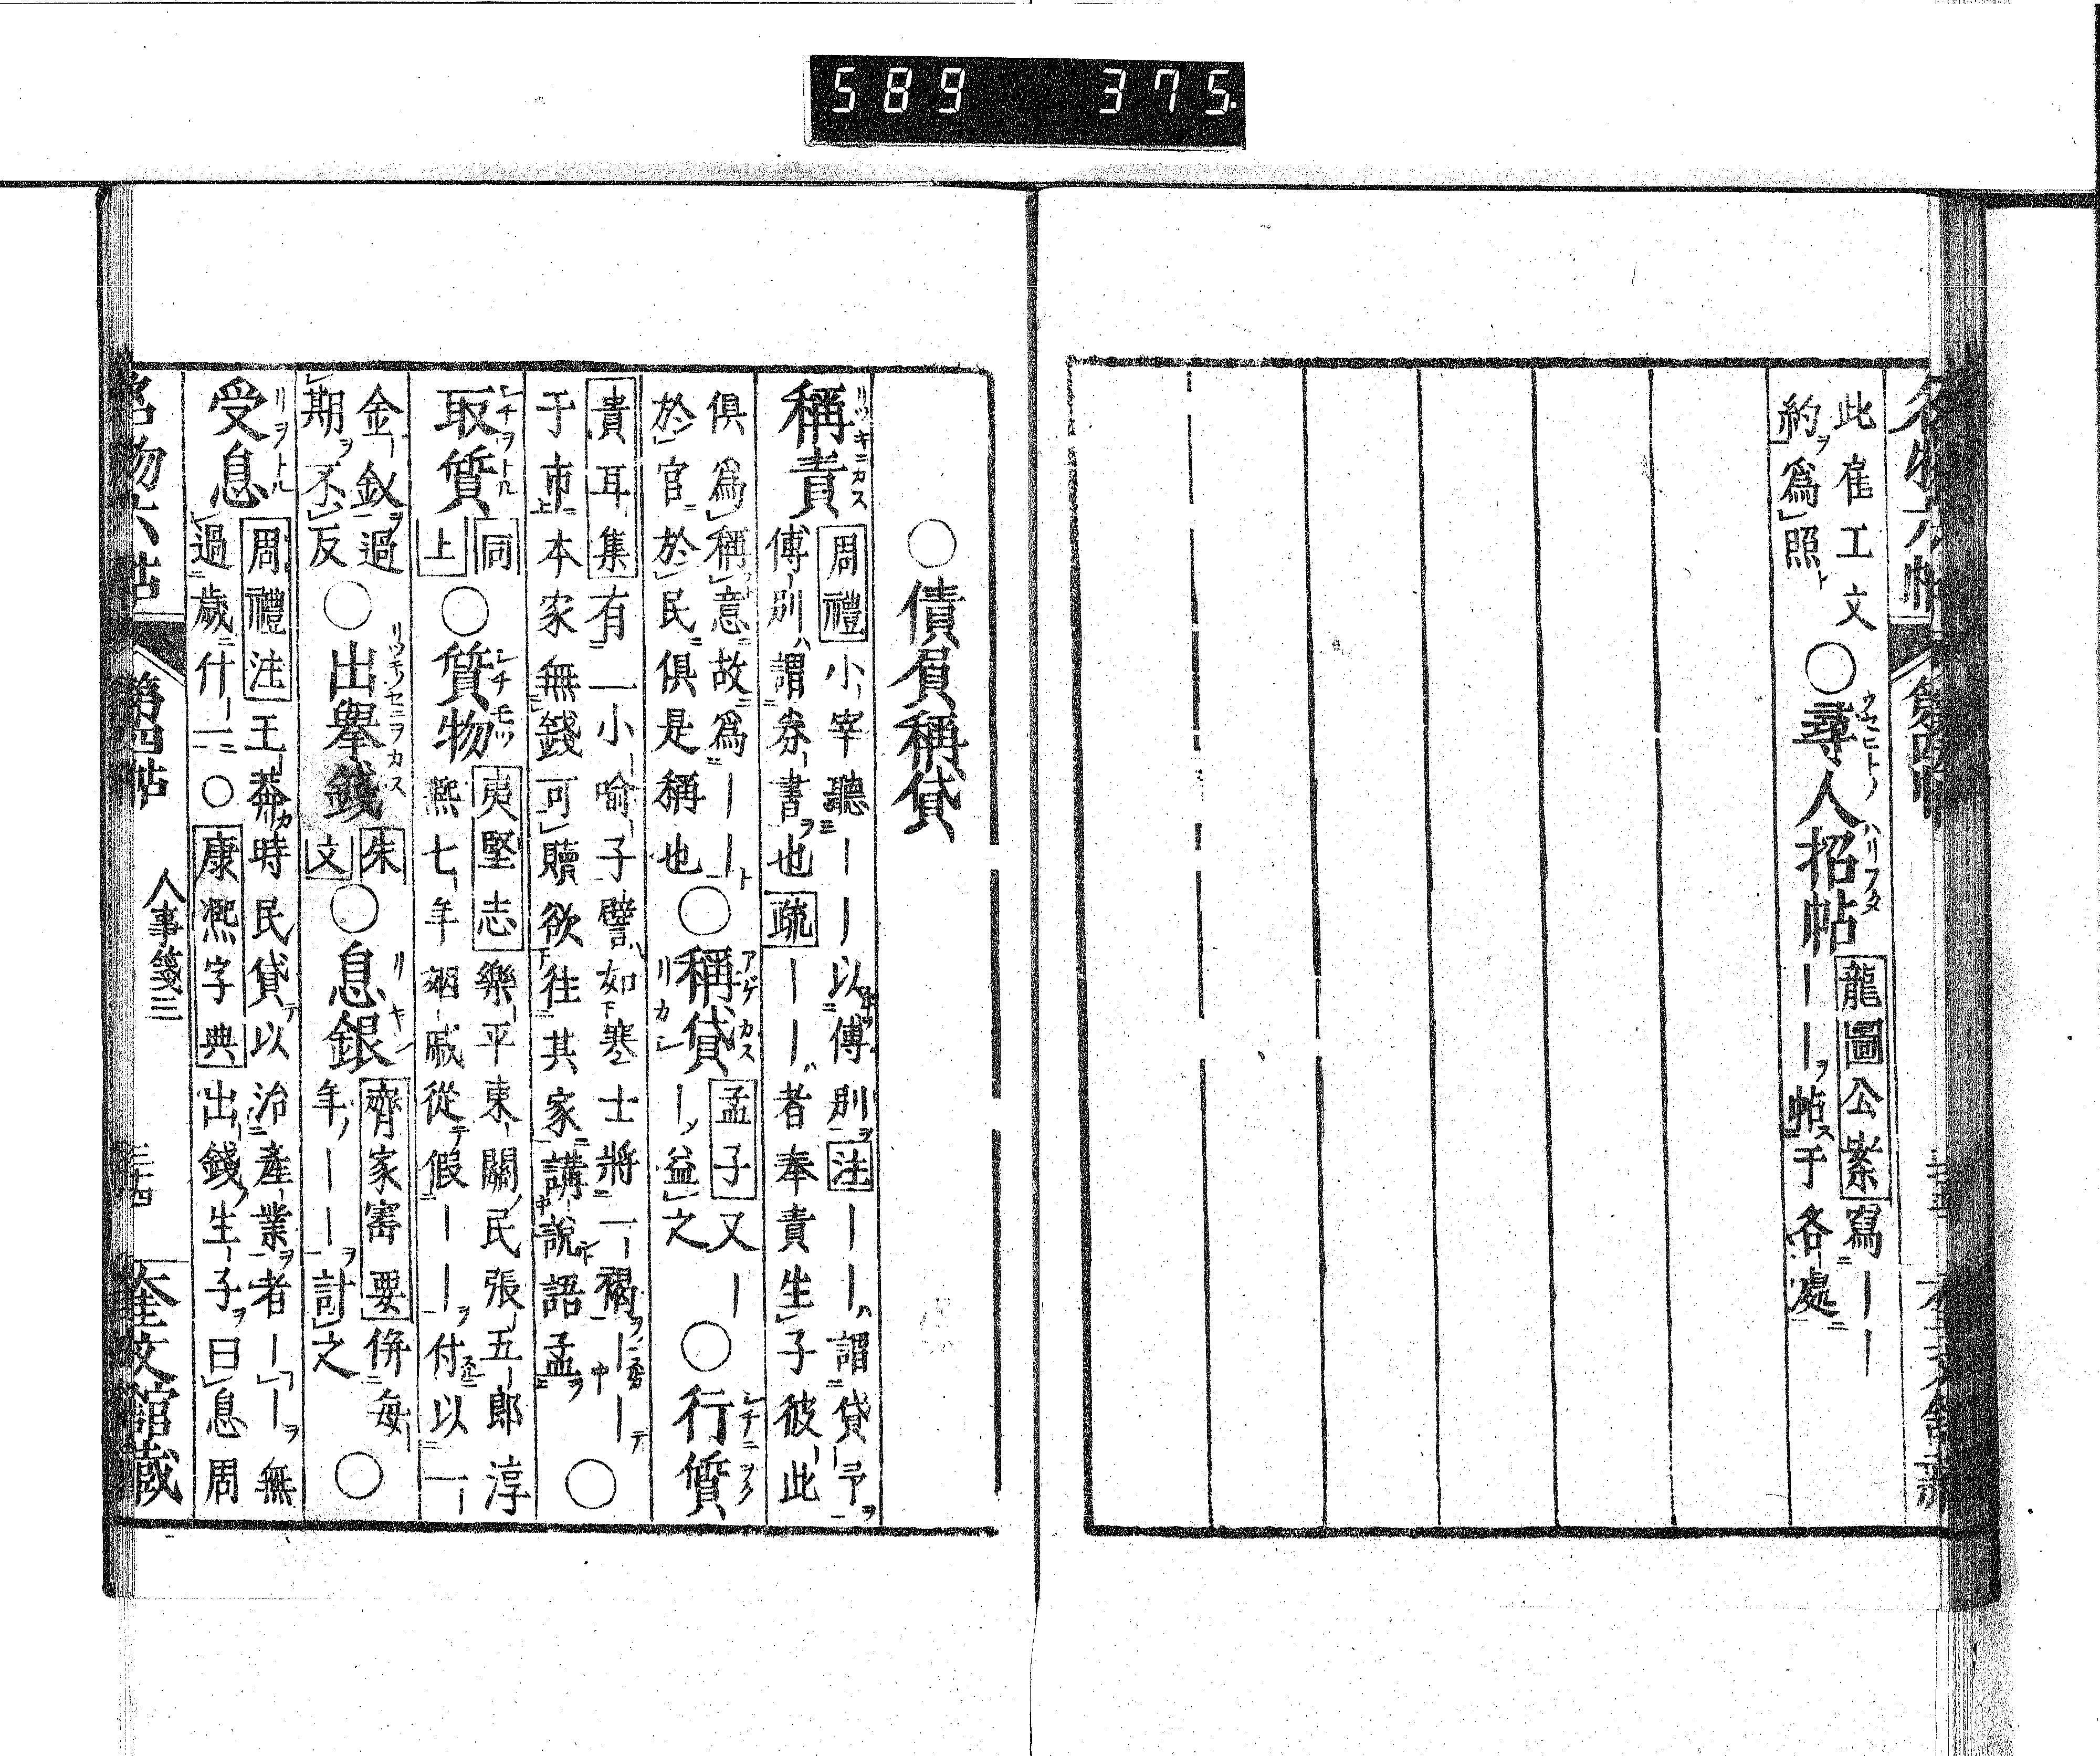 589 375.
名物六帖 第四帖
此雇工文
約ヲ爲照ト
○尋人招帖 龍圖公案 寫｜｜
｜｜ヲ帖ス于各處ニ
○債負稱貸
稱責 周禮 小宰聽｜｜以傅別ヲ 注 ｜｜ハ謂貸予ヲ
傅別ハ謂券書ヲ也 疏 ｜｜者奉責生子彼此
俱爲稱意故爲｜｜ト
於官於民俱是稱也
○稱貸 孟子 又｜
｜ノ益之
○行質
貴耳集 有一小喻子譬如寒士將一褐ヲ｜｜テ
于市本家無錢可贖欲往其家講說語孟ヲ
○取質 同上
○質物 夷堅志 樂平東關民張五郎淳
熙七年姻戚從テ假｜｜ヲ付以一
金釵ヲ過
期ヲ不反
○出擧錢 朱文
○息銀 齊家寶要 併每
年ノ｜｜ヲ計之
○受息 周禮注 王莽時民貸テ以治產業ヲ者｜｜ヲ無
過歲什一 ○ 康熙字典 出錢生子ヲ曰息周
名物六帖 第四帖 人事箋三 三十四 奎文館藏